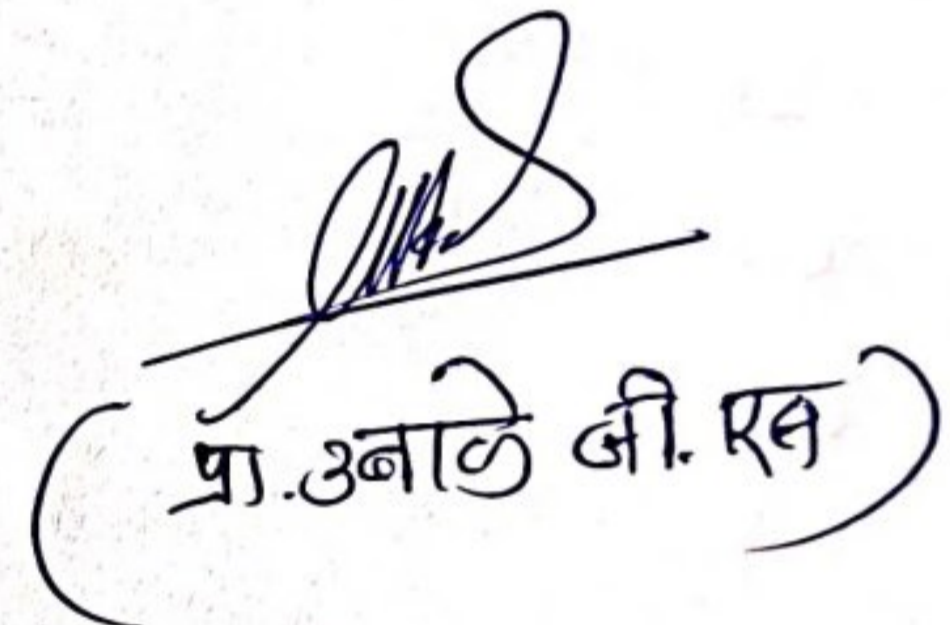 (प्रा. उबाळे जी. एस)